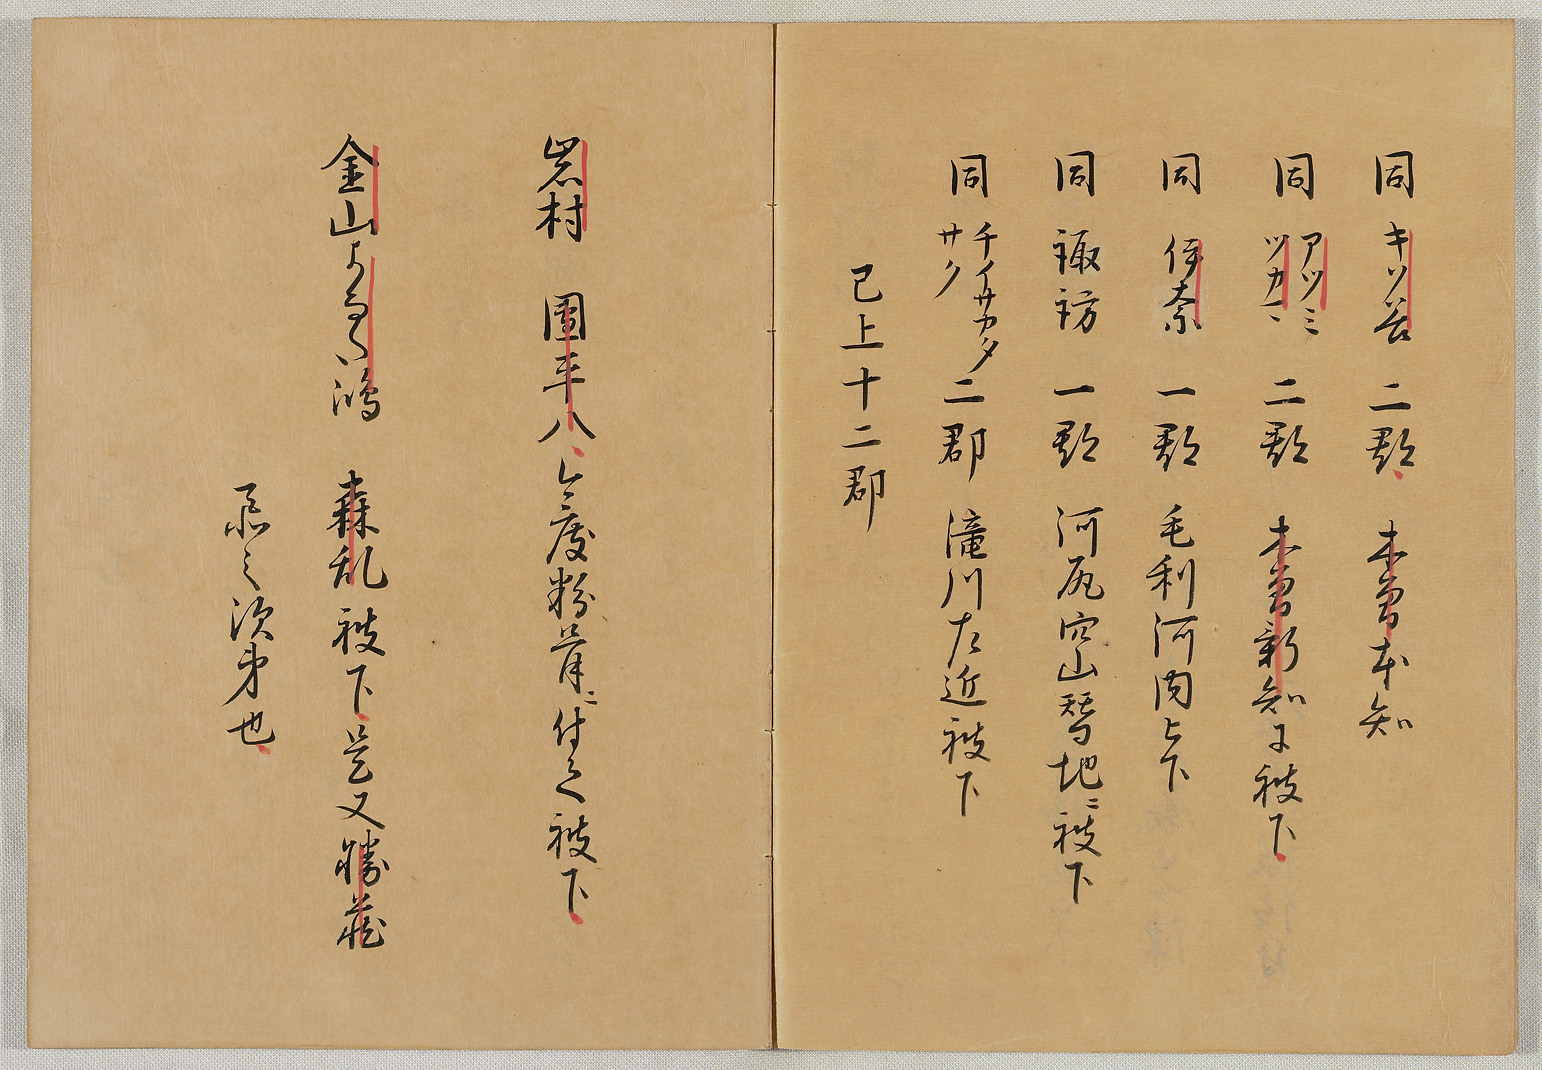 同 キソ谷 二郡 木曽本知
同 アツミ ツカマ 二郡 木曽新知ニ被下
同 伊奈 一郡 毛利河内被下
同 諏訪 一郡 河尻穴山替地ニ被下
同 チイサカタ サク 二郡 滝川左近被下
已上十二郡
岩村 團平八今度粉骨ニ付て被下
金山よなた嶋 森乱被下是又勝蔵
忝之次第也